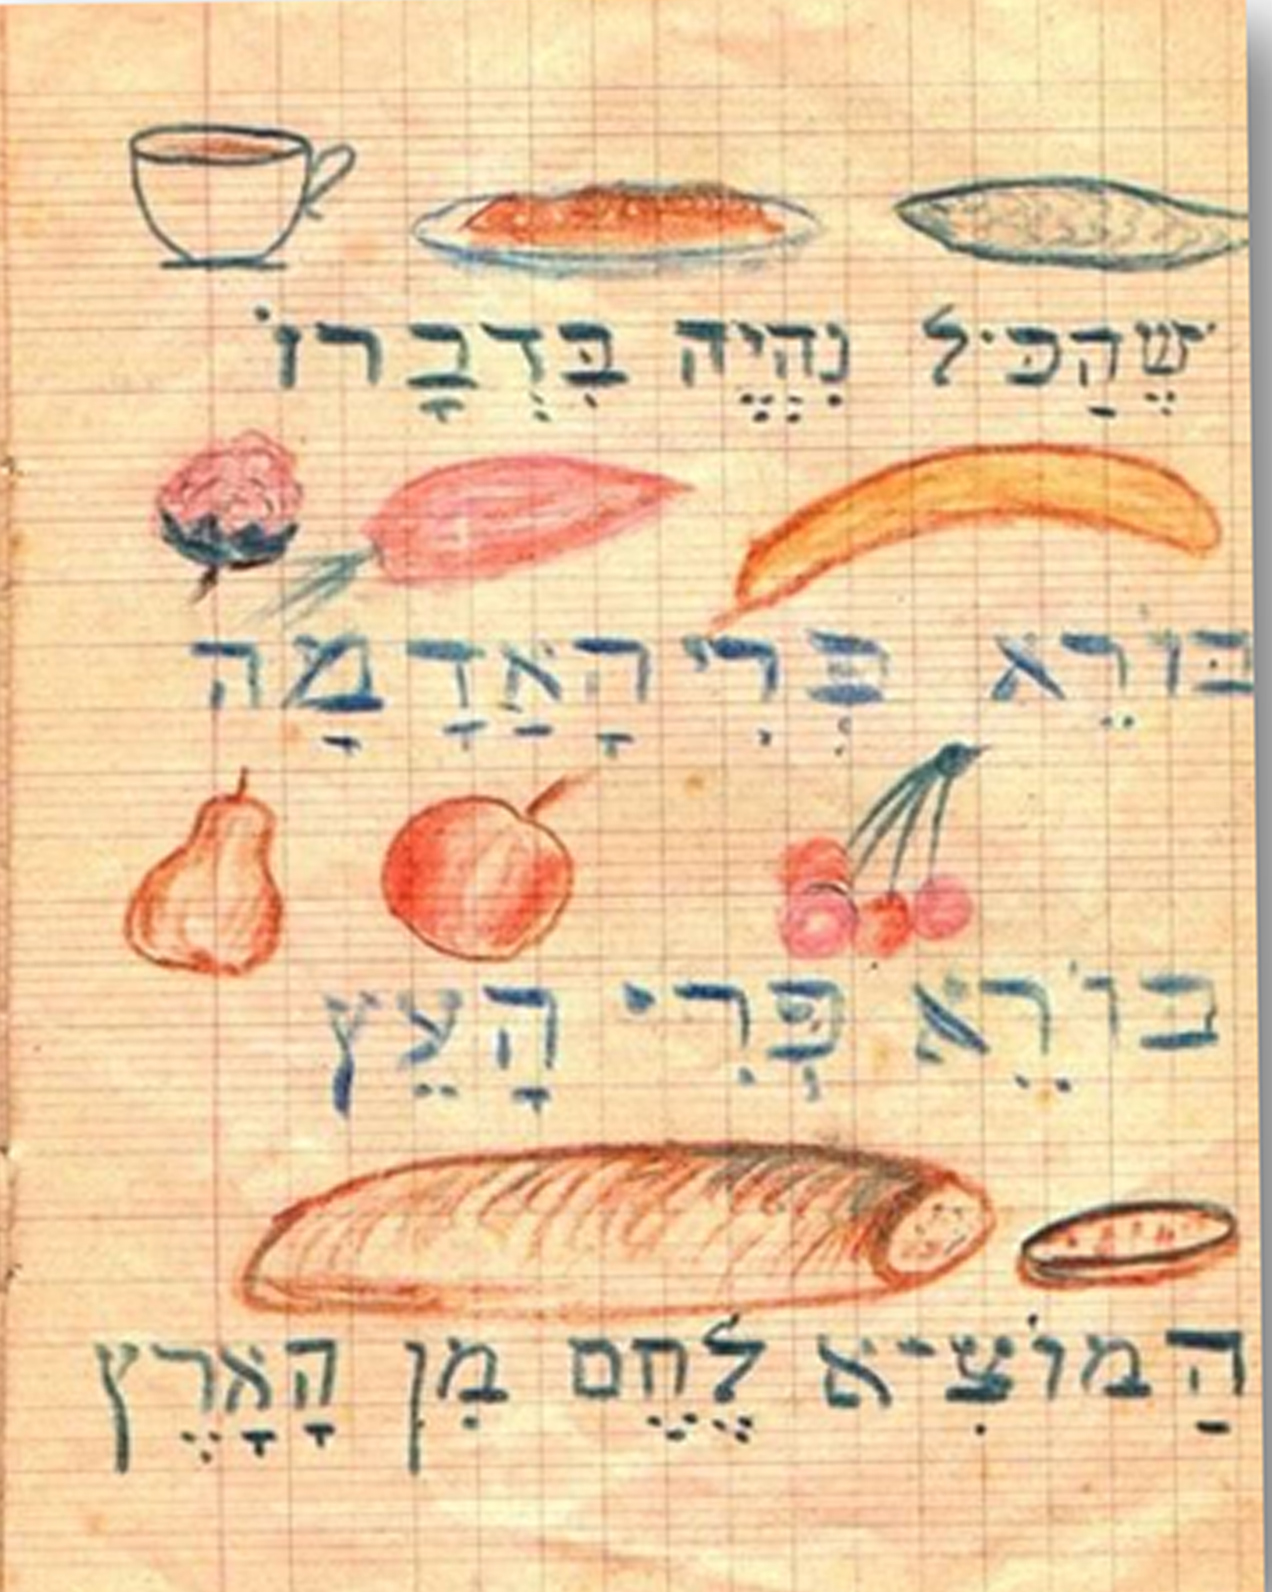 שֶׁהַכֹּל נִהְיֶה בִּדְבָרוֹ
בּוֹרֵא פְּרִי הָאַדָמָה
בוֹרֵא פְּרִי הָעֵץ
הַמוֹצִיא לֶחֶם מִן הָאָרֶץ